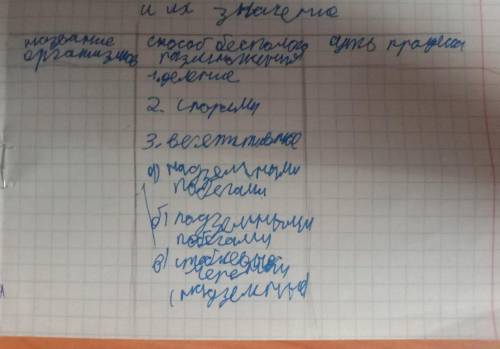 и их значение
название организмов
способ бесполого размножения
суть процесса
1. деление
2. спорами
3. вегетативное
а) надземными
побегами
б) подземными
побегами
в)
черенки